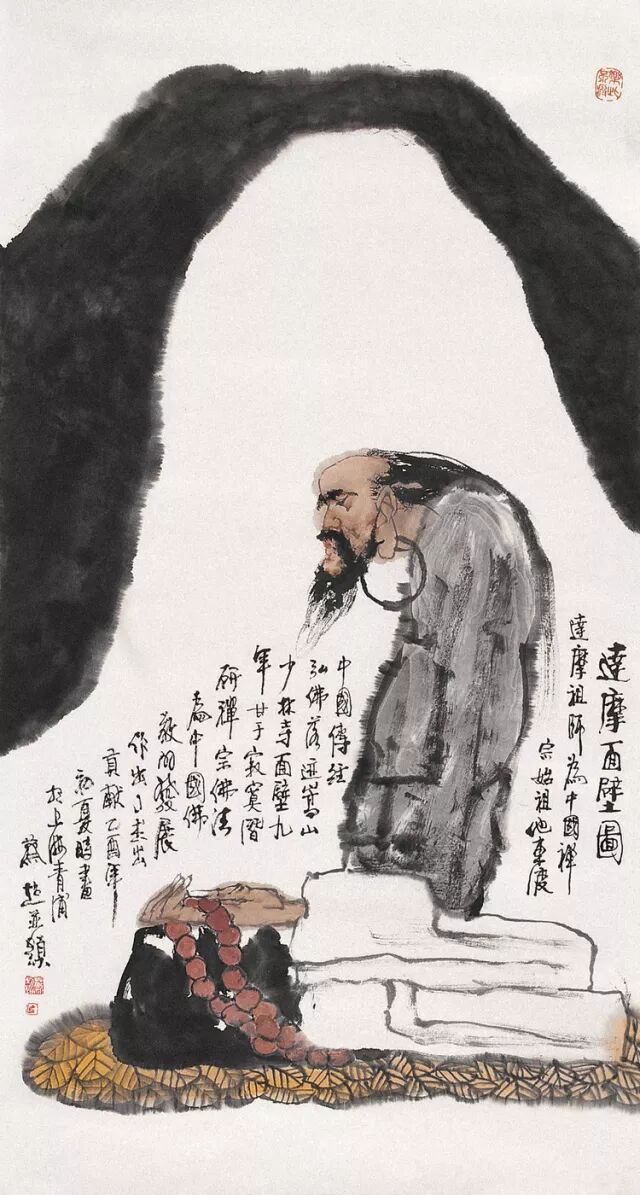 達摩面壁圖
達摩祖师為中國禅
宗始祖他東渡
中國傳经
弘佛落迹嵩山
少林寺面壁九
年甘于寂寞潛
研禪宗佛法
為中國佛
教的發展
作出了杰出
貢献乙酉年
初夏時畫
於上海青浦
蔡超並題